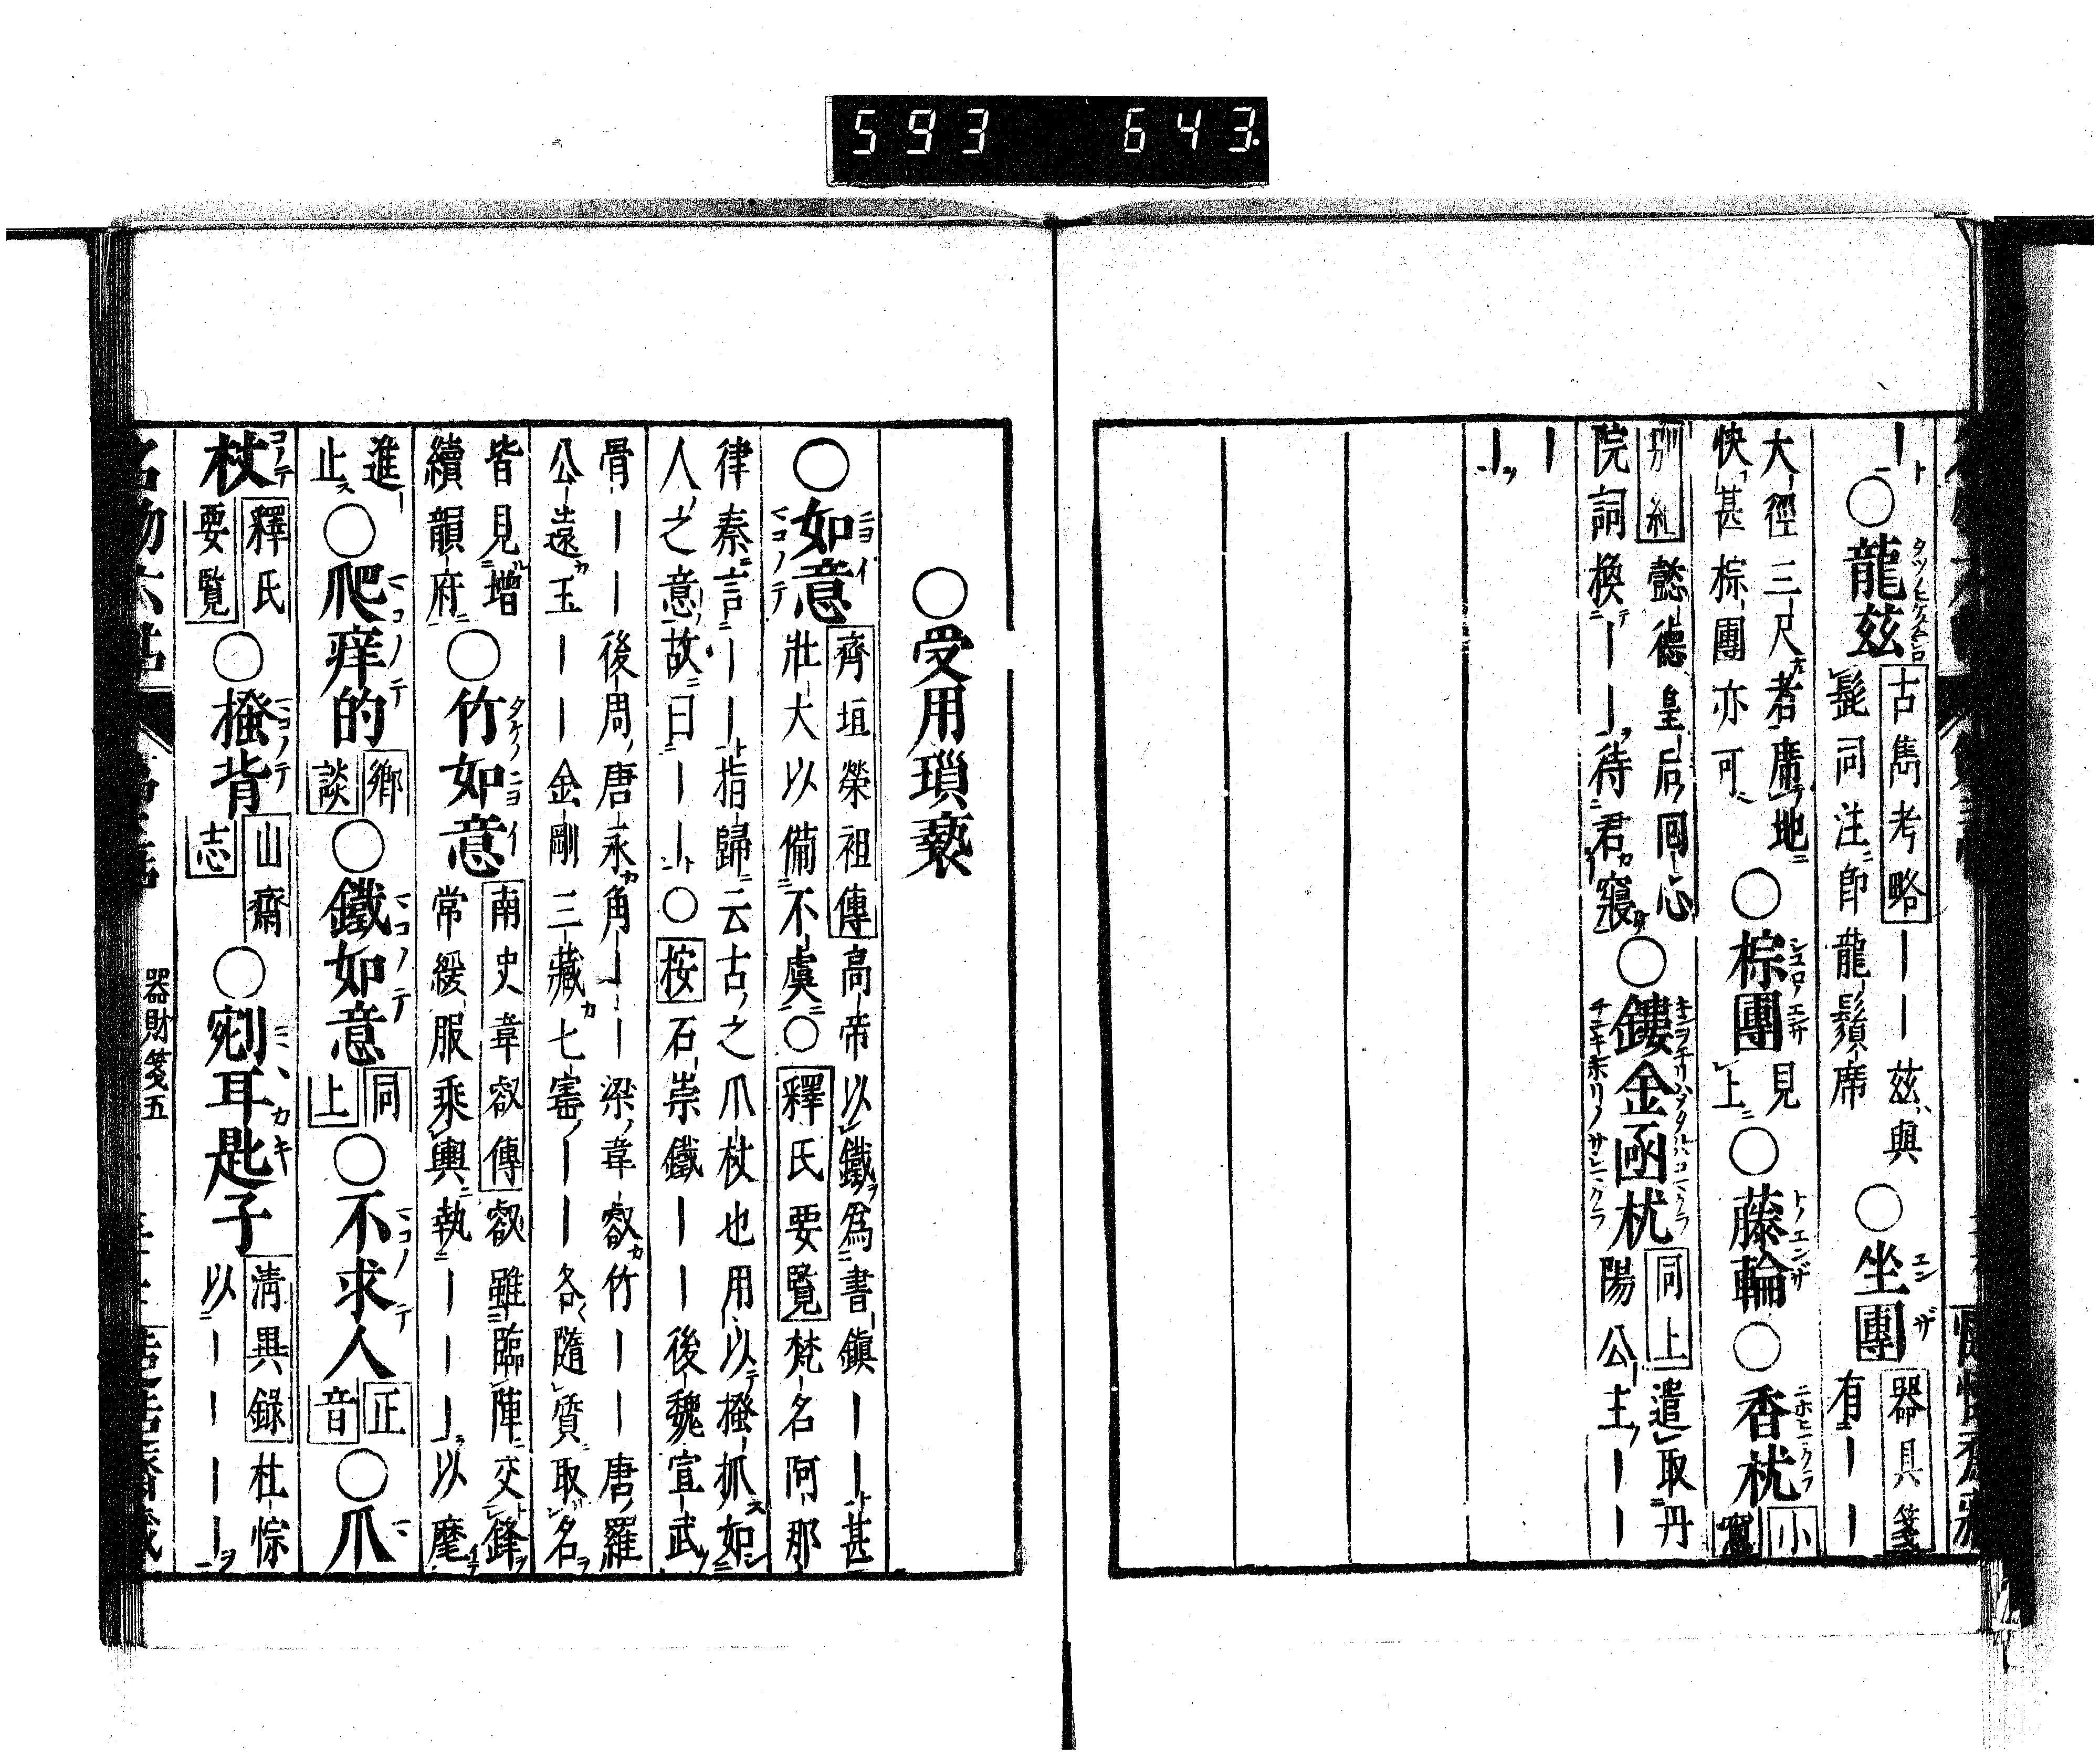 593 643
｜
○龍茲
古雋考略｜｜茲與
髢同注即龍鬚席
○坐團
器具箋
有｜｜
大徑三尺者席地
快甚棕團亦可
○棕團
見上
○藤輪
○香枕
小窻
別紀懿德皇后囘心
院詞換｜｜待君寢
○鏤金函枕
同上遣取丹
陽公主｜｜
｜
｜
○受用瑣褻
○如意
齊垣榮祖傳高帝以鐵爲書鎭｜｜甚
壯大以備不虞○釋氏要覽梵名阿那
律秦言｜｜指歸云古之爪杖也用以搔抓如
人之意故曰｜｜○按石崇鐵｜｜後魏宣武
骨｜｜後周唐永角｜｜梁韋叡竹｜｜唐羅
公遠玉｜｜金剛三藏七寳｜｜各隨質取名
皆見增
續韻府
○竹如意
南史韋叡傳叡雖臨陣交鋒
常緩服乘輿執｜｜｜以麾
進
止
○爬痒的
鄉談
○鐵如意
同上
○不求人
正音
○爪
杖
釋氏
要覽
○搔背
山齋
志
○剜耳匙子
淸異錄杜悰
以｜｜｜｜
器財箋五